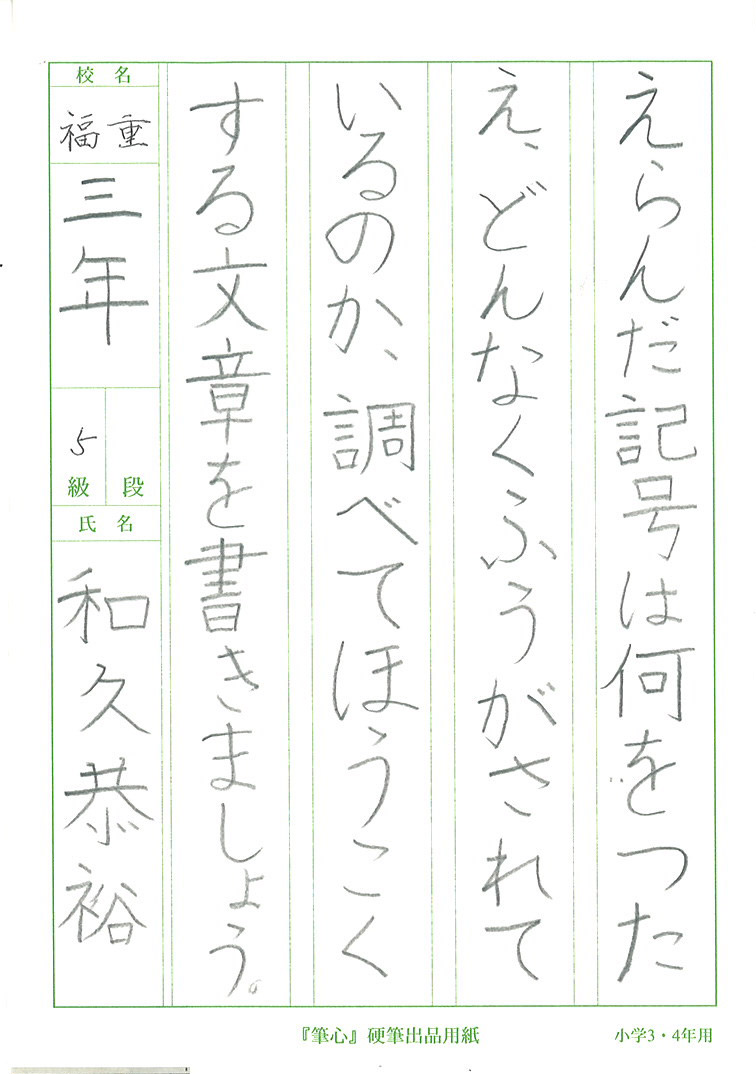 えらんだ記号は何をつた
え、どんなくふうがされて
いるのか、調べてほうこく
する文章を書きましょう。
校名
福重
三年
段
5級
氏名
和久恭裕
『筆心』硬筆出品用紙
小学3・4年用